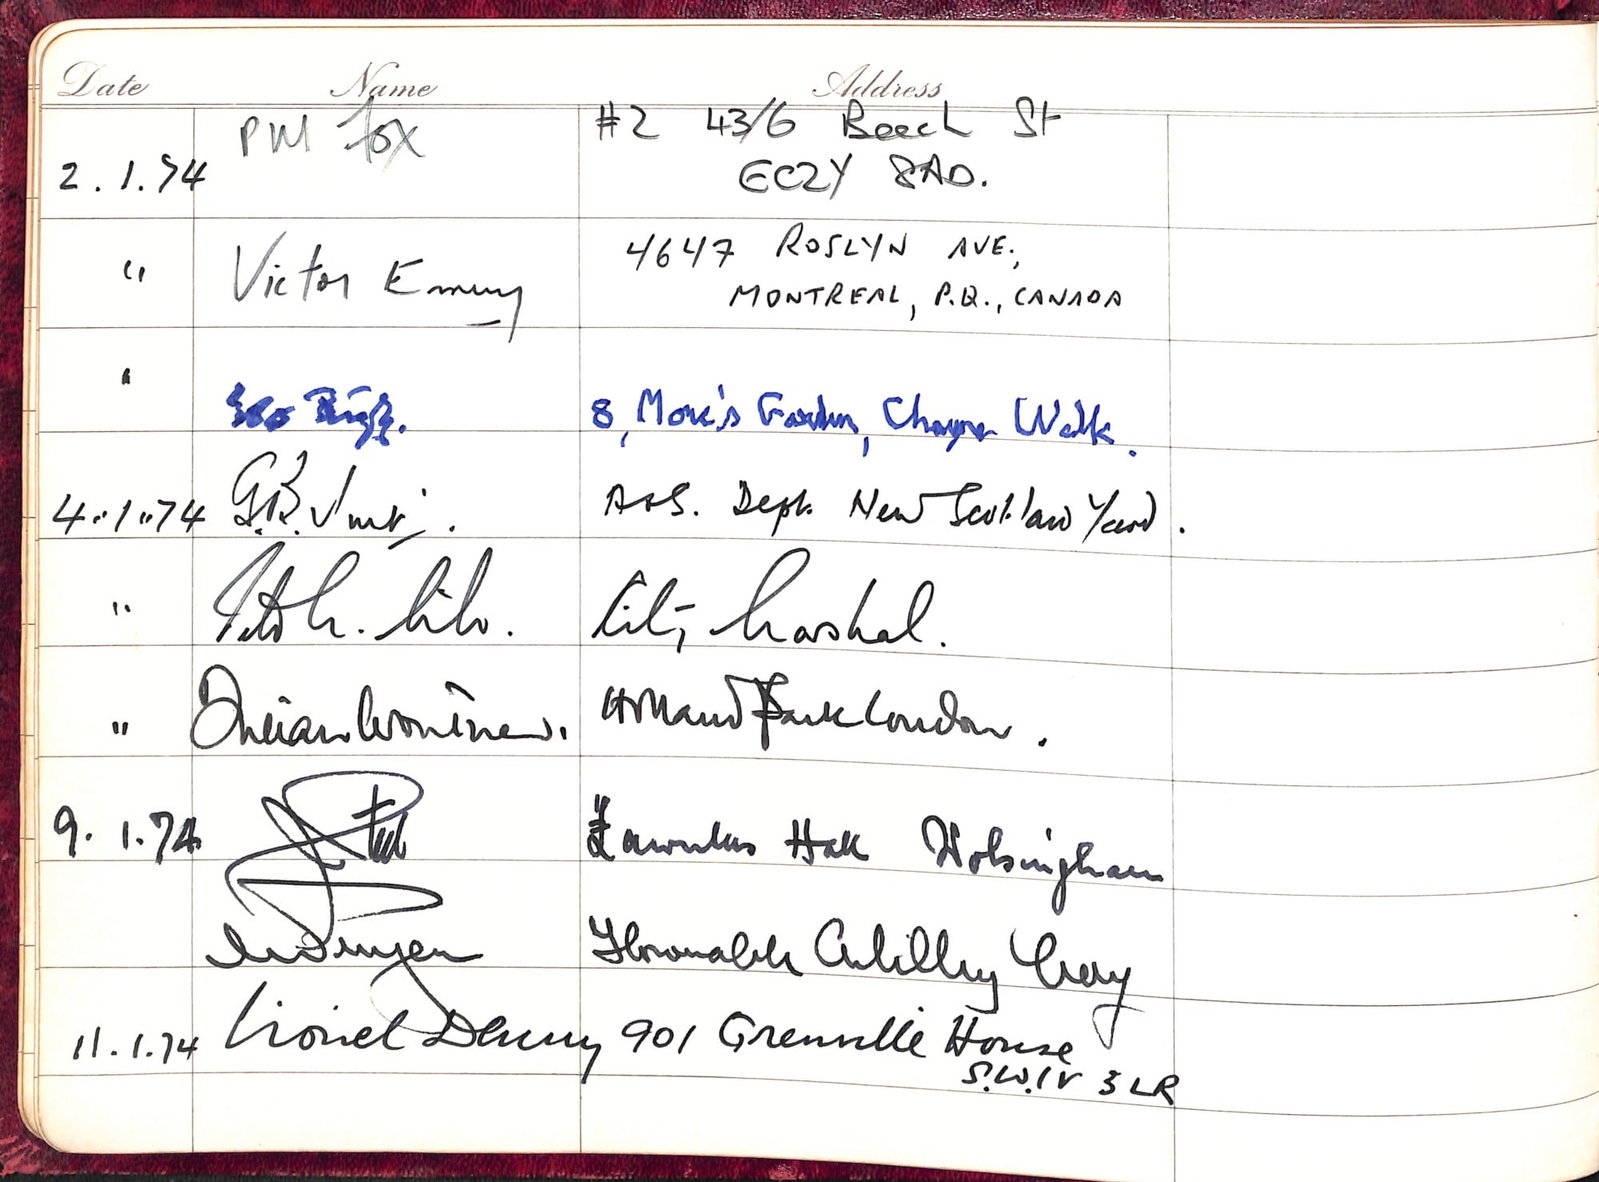 Date Name Address
PM Fox #2 43/6 Beech St
2.1.74 EC2Y 8AD.
" Victor Emery 4647 ROSLYN AVE.,
MONTREAL, P.Q., CANADA
" 8, More's Garden, Cheyne Walk.
4.1.74 G.B. Dept. New Scotland Yard.
" City Marshal.
" Holland Park London.
9.1.74 Hall Wolsingham
Honourable Artillery Coy
11.1.74 Lionel Denny 901 Grenville House
S.W.1V 3LR